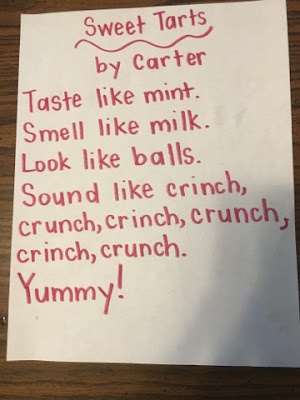 Sweet Tarts
by Carter
Taste like mint.
Smell like milk.
Look like balls.
Sound like crinch,
crunch, crinch, crunch,
crinch, crunch.
Yummy!